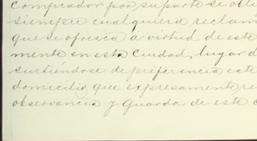 comprador por su parte se obli
siempre cualquiera reclam
que se ofresca a virtud de este
mente en esta ciudad, lugar d
surtiéndose de preferencia este
domicilio que expresamente re
observancia y guarda de este c